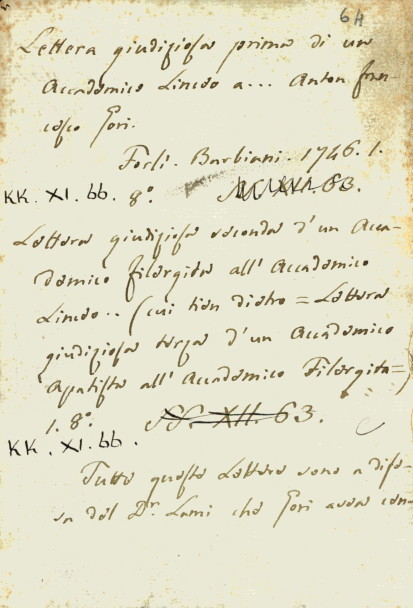 64
Lettera giudiziosa prima di un
Accademico Linceo a... Anton fran-
cesco Gori.
Forlì. Barbiani. 1746. 1.
KK. XI. 66. 8º. 63.
Lettera giudiziosa seconda d'un Acca-
demico filergita all' Accademico
Linceo.. (cui tien dietro = Lettera
giudiziosa terza d'un Accademico
Apatista all' Accademico Filergita =)
1. 8º. SS. XII. 63.
KK. XI. 66.
Tutte queste Lettere sono a dife-
sa del Dr. Lami che Gori avea con-